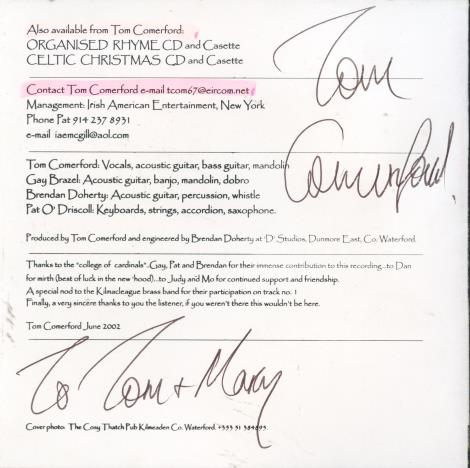 Also available from Tom Comerford:
ORGANISED RHYME CD and Casette
CELTIC CHRISTMAS CD and Casette
Tom
Contact Tom Comerford e-mail tcom67@eircom.net
Management: Irish American Entertainment, New York
Phone Pat 914 237 8931
e-mail iaemcgill@aol.com
Comerford
Tom Comerford: Vocals, acoustic guitar, bass guitar, mandolin
Gay Brazel: Acoustic guitar, banjo, mandolin, dobro
Brendan Doherty: Acoustic guitar, percussion, whistle
Pat O' Driscoll: Keyboards, strings, accordion, saxophone.
Produced by Tom Comerford and engineered by Brendan Doherty at 'D' Studios, Dunmore East, Co. Waterford.
Thanks to the "college of cardinals"..Gay, Pat and Brendan for their immense contribution to this recording...to Dan
for mirth (best of luck in the new 'hood)...to Judy and Mo for continued support and friendship.
A special nod to the Kilmacleague brass band for their participation on track no. 1
Finally, a very sincere thanks to you the listener, if you weren't there this wouldn't be here.
Tom Comerford June 2002
To Tom + Mary
Cover photo: The Cosy Thatch Pub Kilmeaden Co. Waterford. +353 51